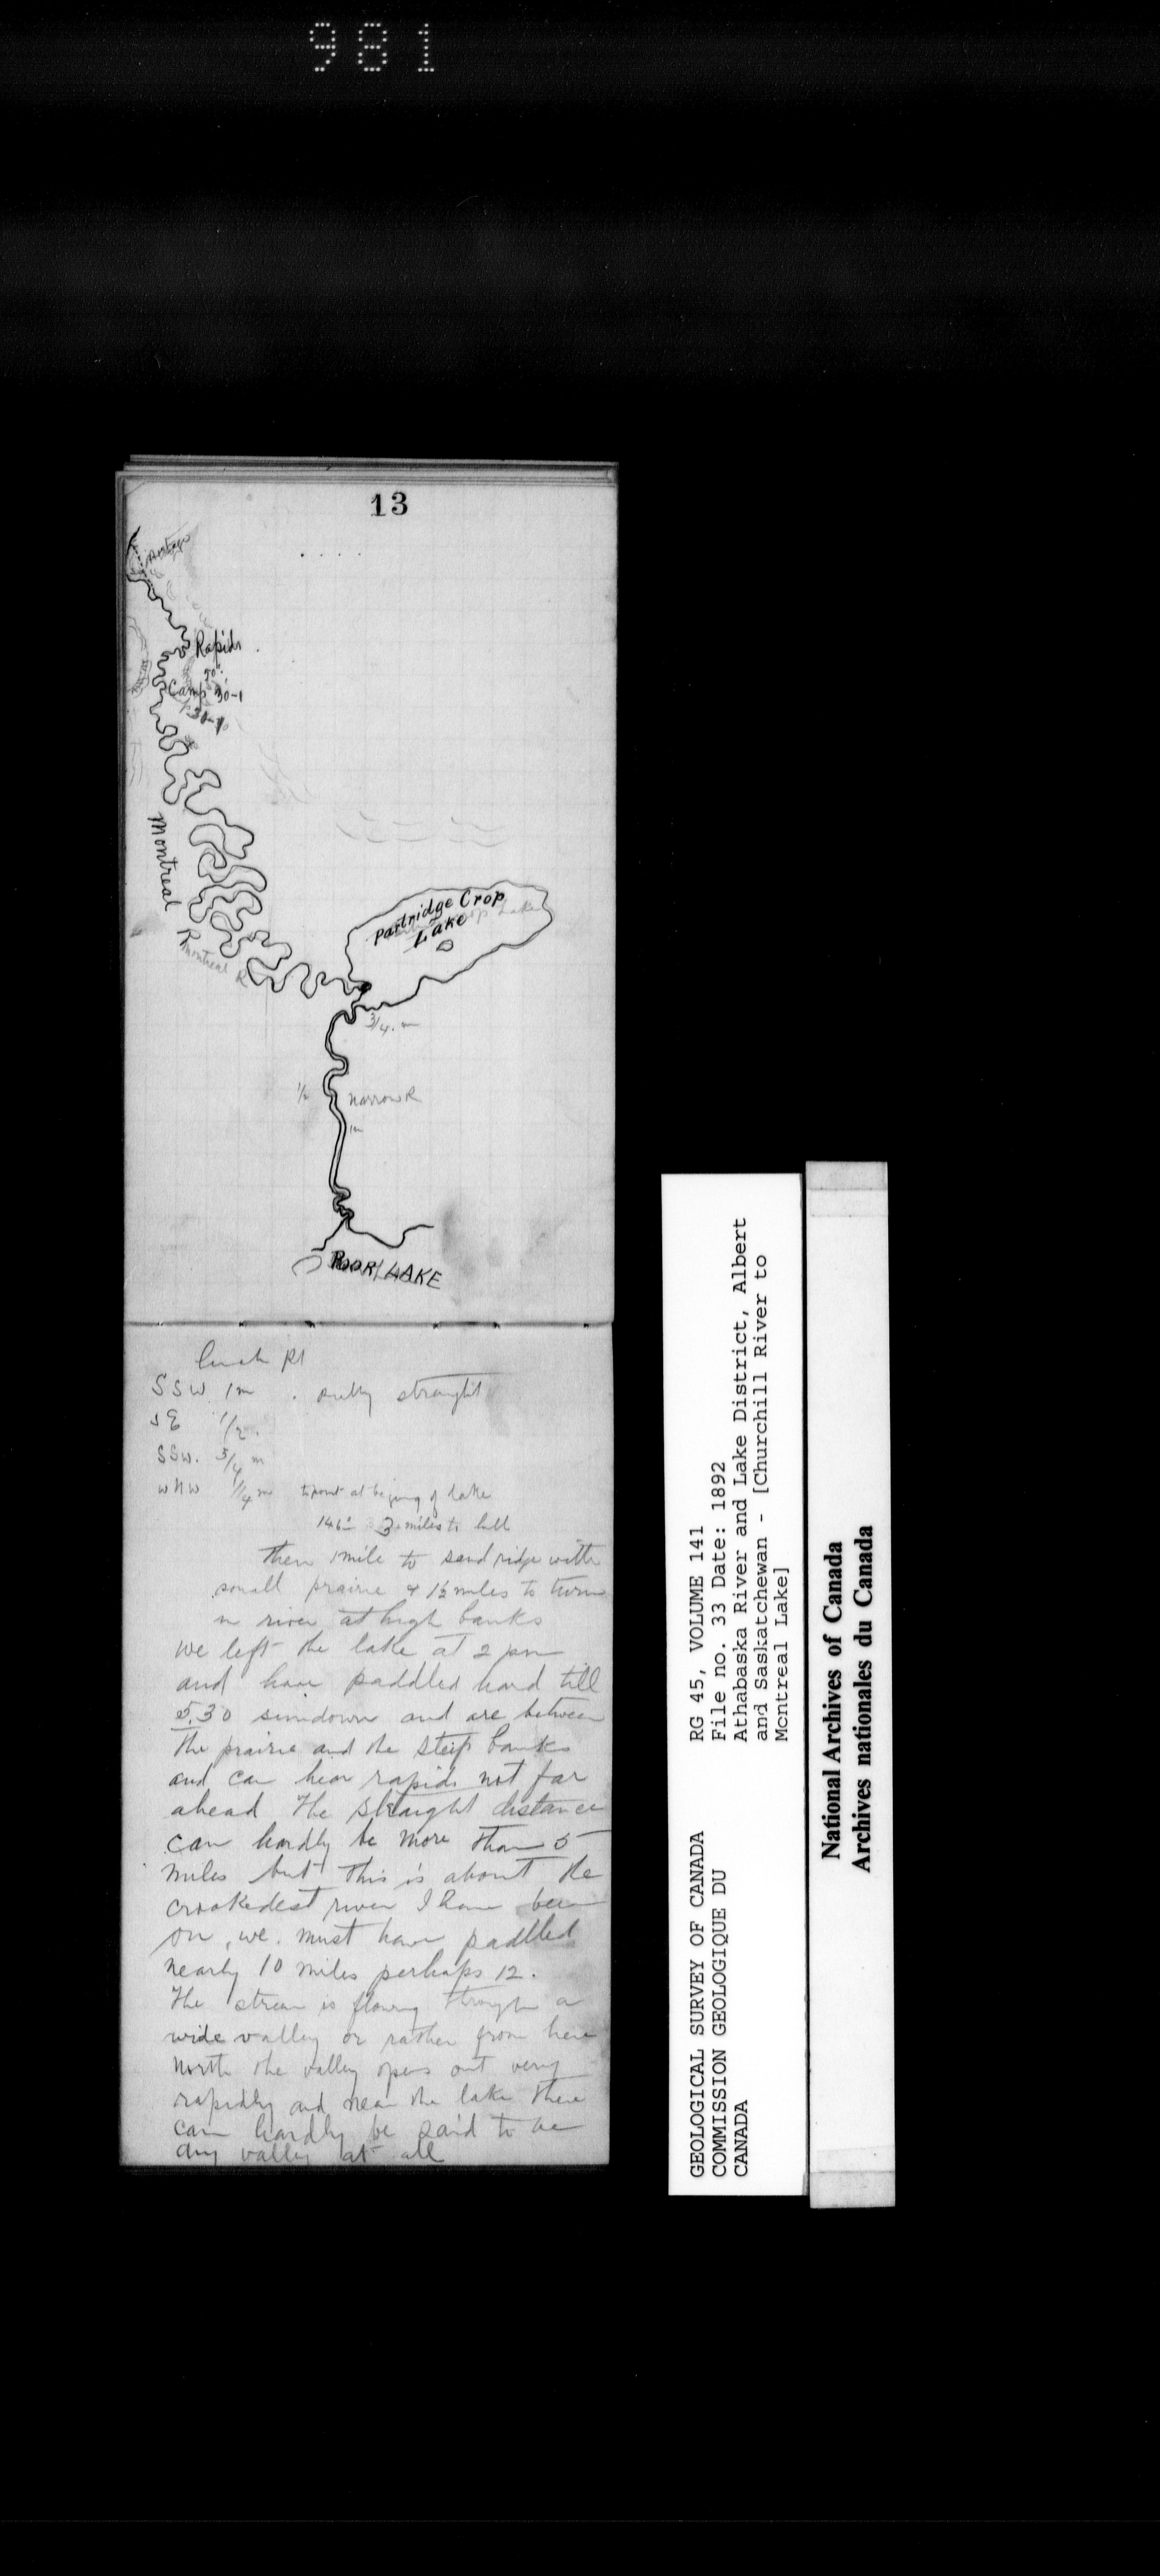 981
13
Portage
Rapids
Camp 30-1
Montreal
R
Montreal R
Partridge Crop
Lake
3/4 m
1/2
narrow R
1m
POOR LAKE
Lunch Pt
SSW 1m . pretty straight
SE 1/2.
SSW. 3/4 m
WNW 1/4 m to point at begining of lake
146° 3 miles to hill
then 1 mile to sand ridge with
small prairie & 1½ miles to turn
in river at high banks
we left the lake at 2 pm
and have paddled hard till
5.30 sundown and are between
the prairie and the steep banks
and can hear rapids not far
ahead The straight distance
can hardly be more than 5
miles but this is about the
crookedest river I have been
on, we must have paddled
nearly 10 miles perhaps 12.
The stream is flowing through a
wide valley or rather from here
north the valley opens out very
rapidly and near the lake there
can hardly be said to be
any valley at all
GEOLOGICAL SURVEY OF CANADA
COMMISSION GEOLOGIQUE DU
CANADA
RG 45, VOLUME 141
File no. 33 Date: 1892
Athabaska River and Lake District, Albert
and Saskatchewan - [Churchill River to
Montreal Lake]
National Archives of Canada
Archives nationales du Canada